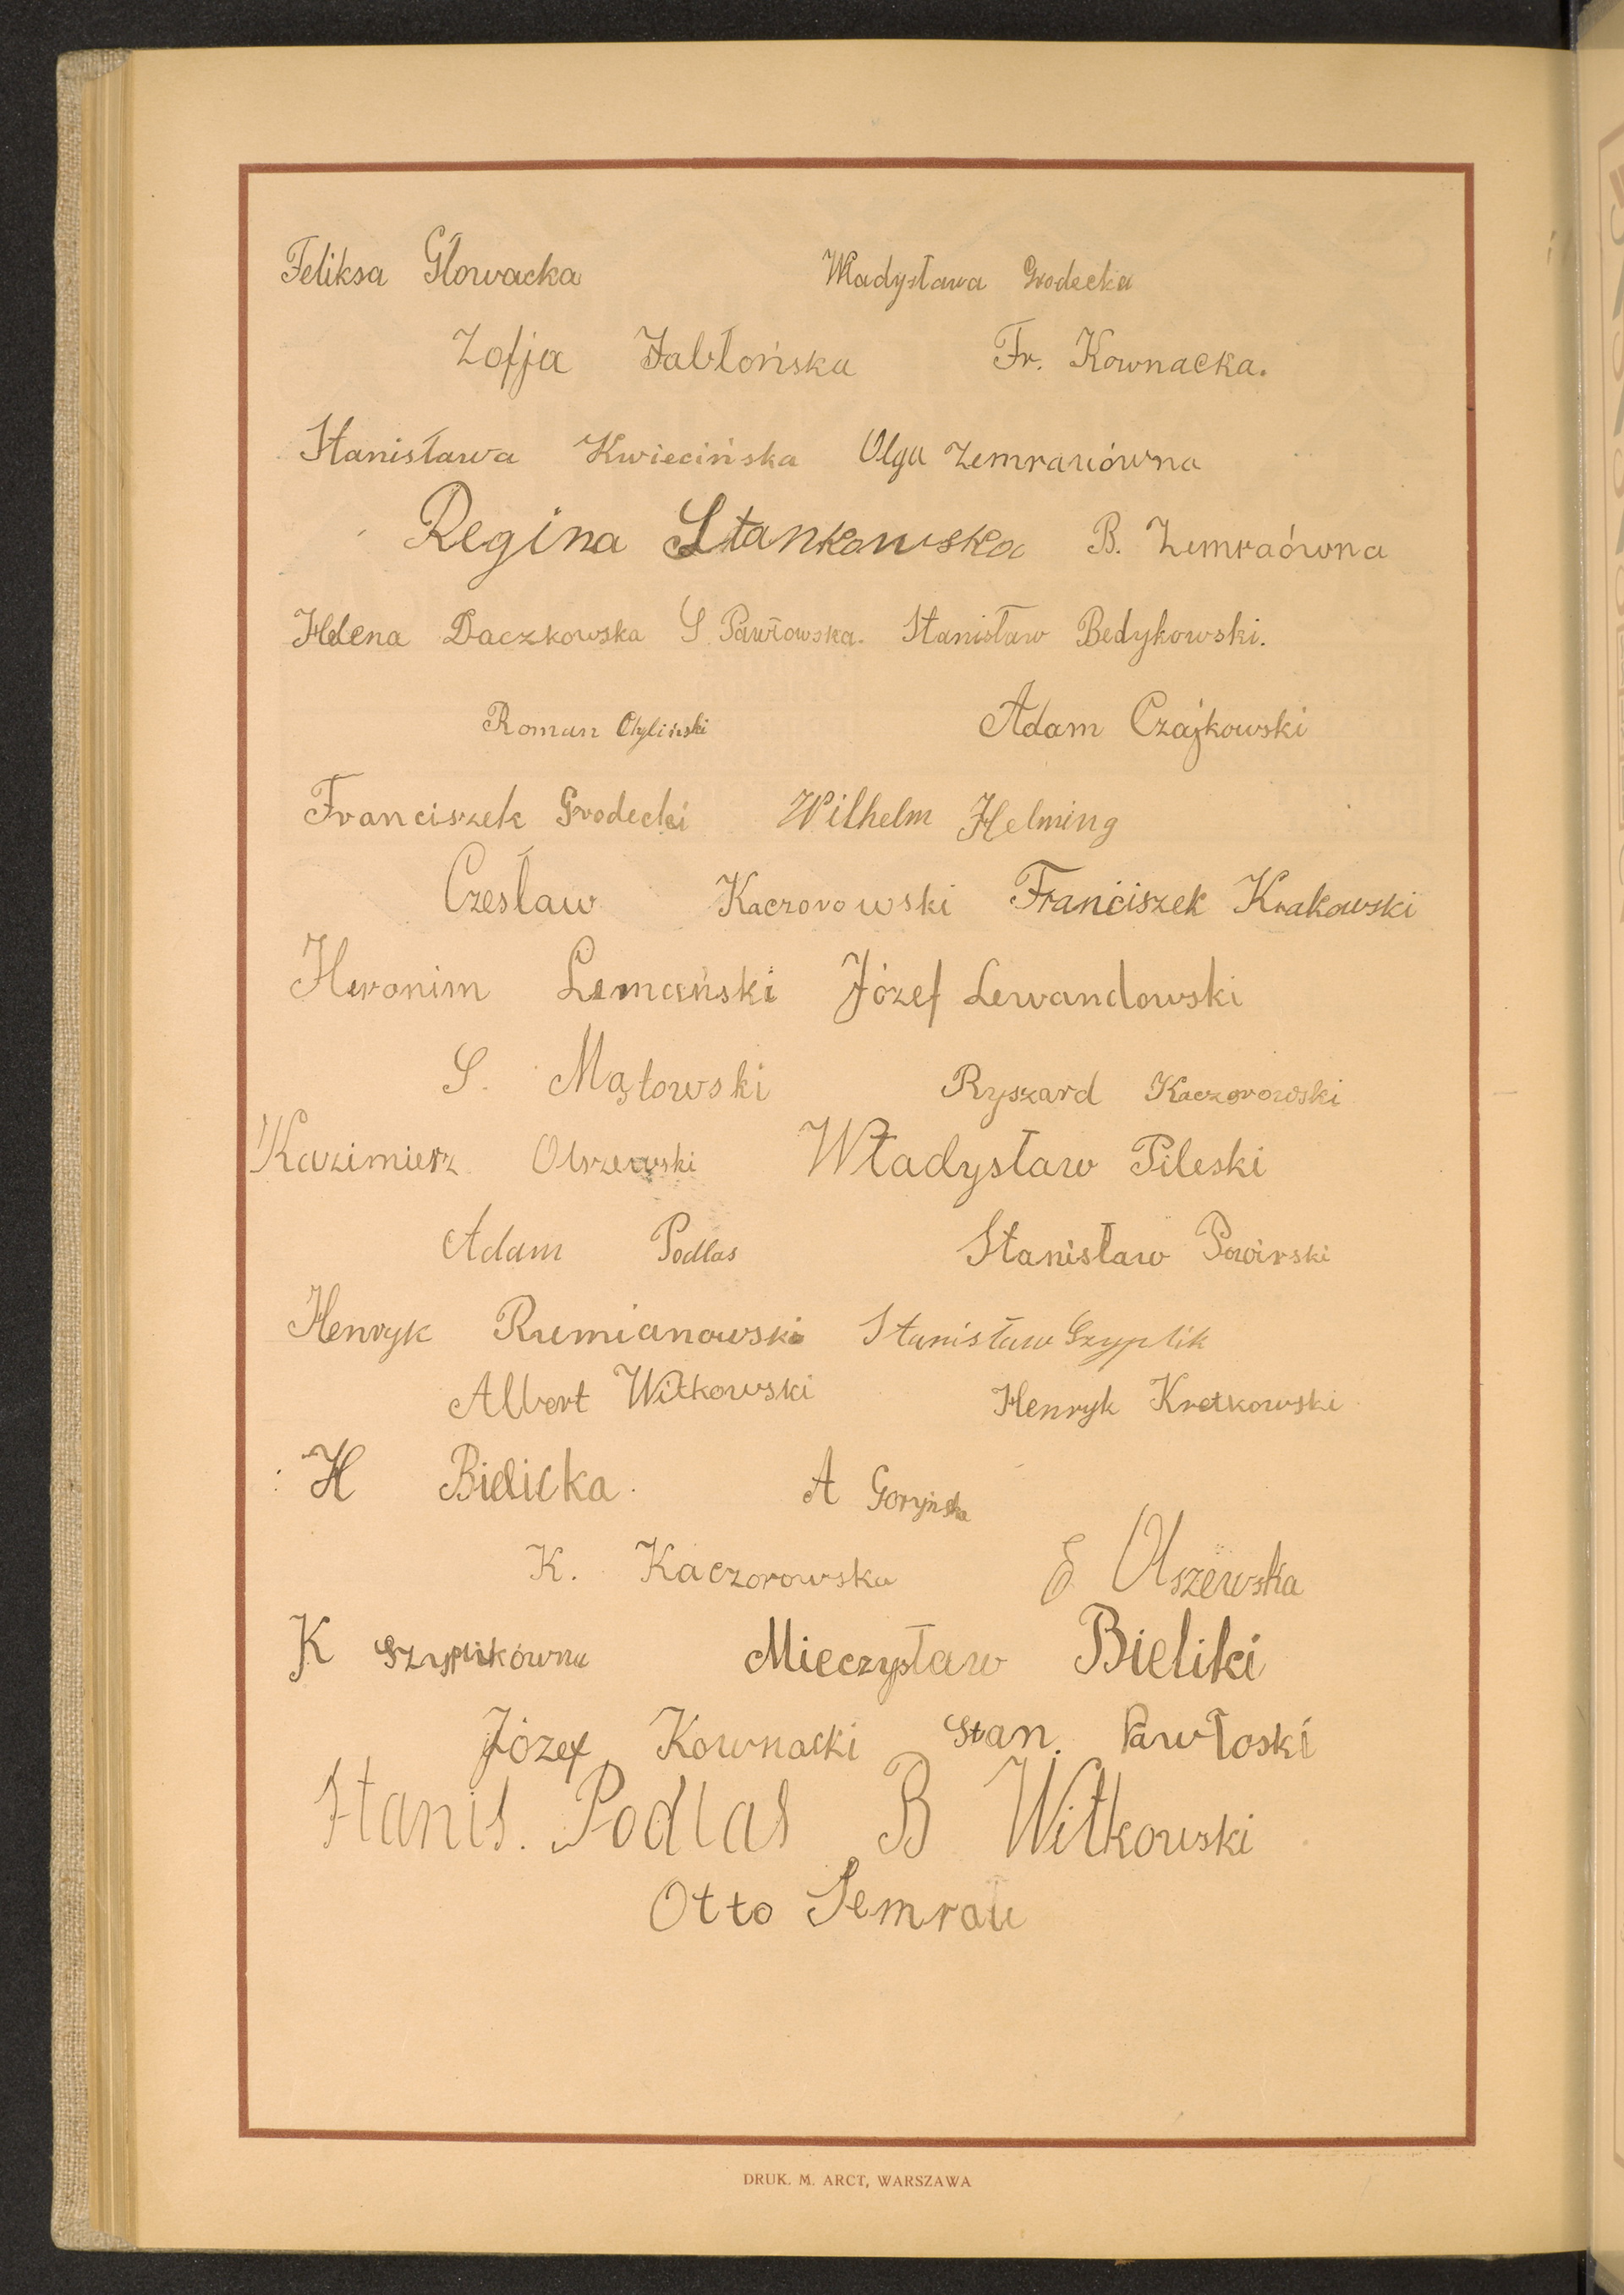 Feliksa Głowacka Władysława Grodecka
Zofja Jabłońska Fr. Kownacka.
Stanisława Kwiecińska Olga Zemrauówna
Regina Stankowska B. Zemraówna
Helena Daczkowska S. Pawłowska. Stanisław Bedykowski.
Roman Chyliński Adam Czajkowski
Franciszek Grodecki Wilhelm Helming
Czesław Kaczorowski Franciszek Krakowski
Heronim Lemański Józef Lewandowski
S. Mątowski Ryszard Kaczorowski
Kazimierz Olszewski Władysław Pileski
Adam Podlas Stanisław Powirski
Henryk Rumianowski Stanisław Szyplik
Albert Witkowski Henryk Kretkowski
H Bielicka. A Goryńska
K. Kaczorowska E Olszewska
K Szyplikówna Mieczysław Bieliki
Józef Kownacki Stan. Pawłoski
Stanis. Podlas B Witkowski
Otto Semrau
DRUK. M. ARCT, WARSZAWA